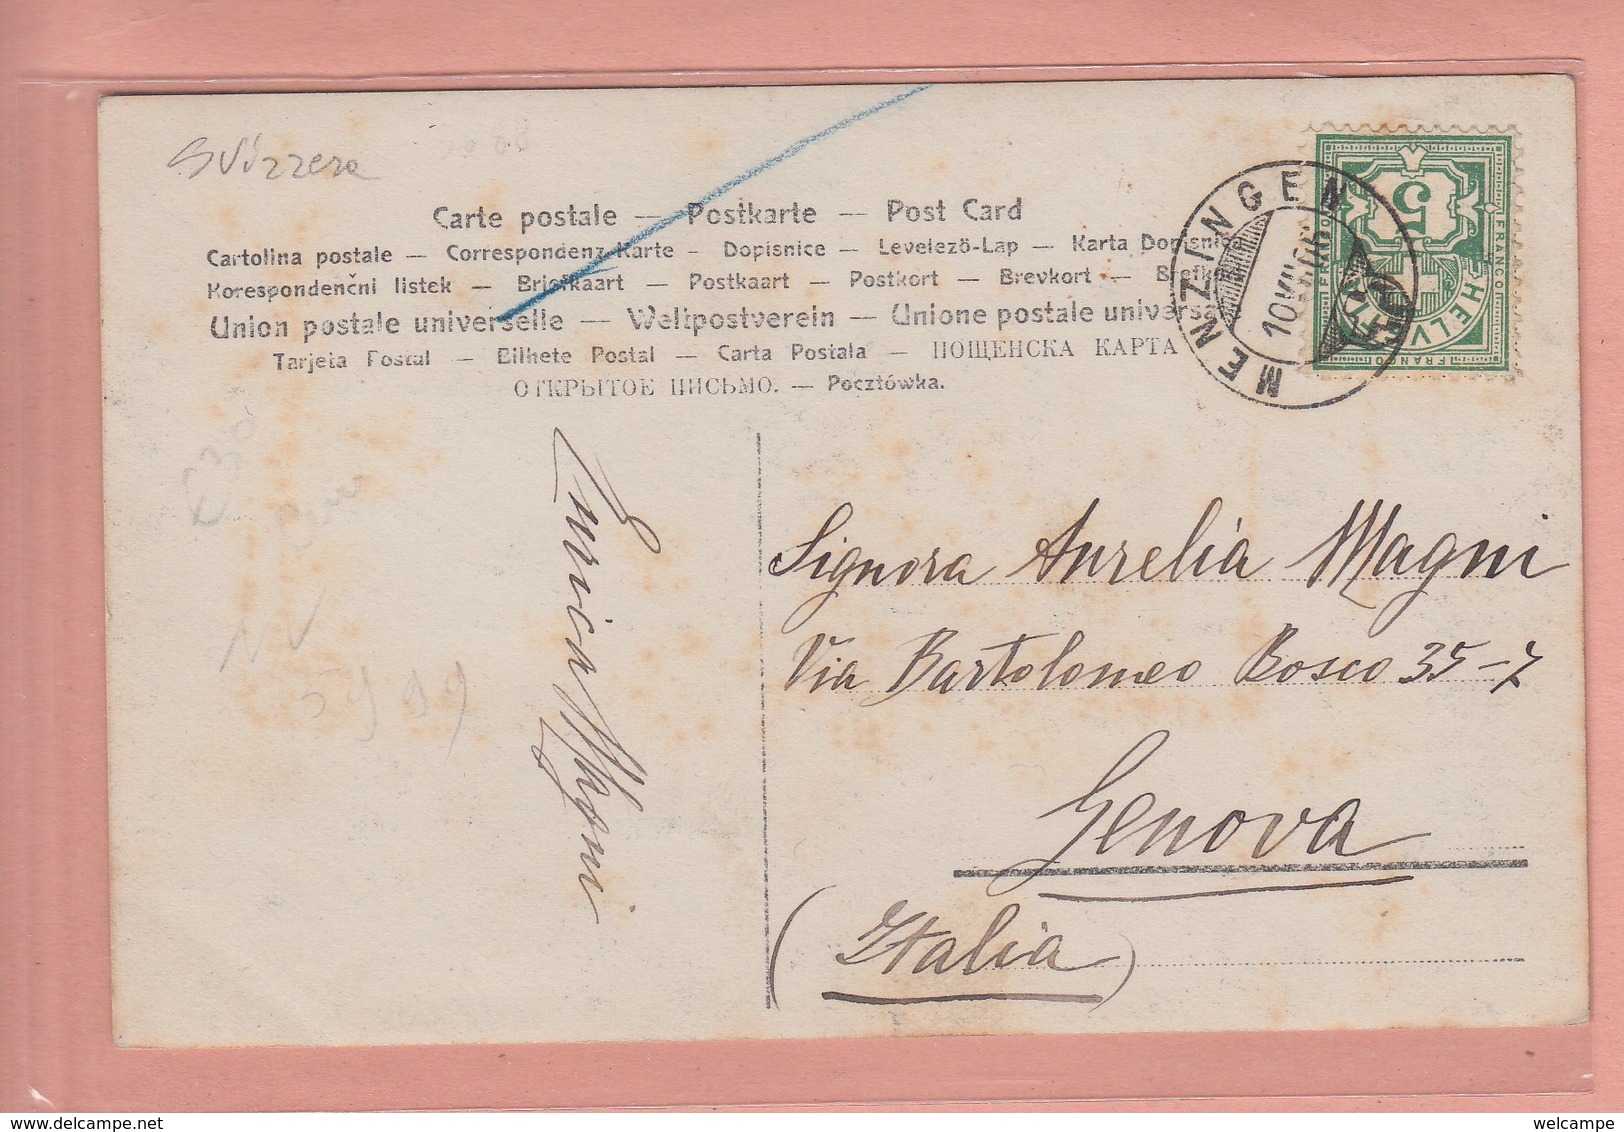 Svizzera
Carte postale — Postkarte — Post Card
Cartolina postale — Correspondenz-Karte – Dopisnice – Levelező-Lap — Karta Dopisnic
Korespondenčni listek – Briefkaart — Postkaart — Postkort – Brevkort – Brefk
Union postale universelle — Weltpostverein — Unione postale universa
Tarjeta Postal – Bilhete Postal – Carta Postala – ПОЩЕНСКА КАРТА
ОТКРЫТОЕ ПИСЬМО. — Pocztówka.
MENZINGEN
10 VII
5
FRANCO
HELV
FRANCO
Enrica Magni
Signora Aurelia Magni
Via Bartolomeo Bosco 35-7
Genova
(Italia)
5999
welcampe